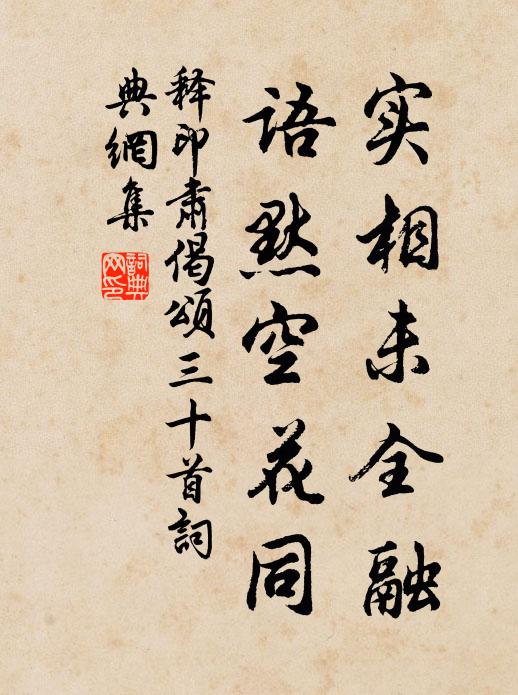 实相未全融
语默空花同
释印肃偈颂三十首词
典網集
詞典
网印